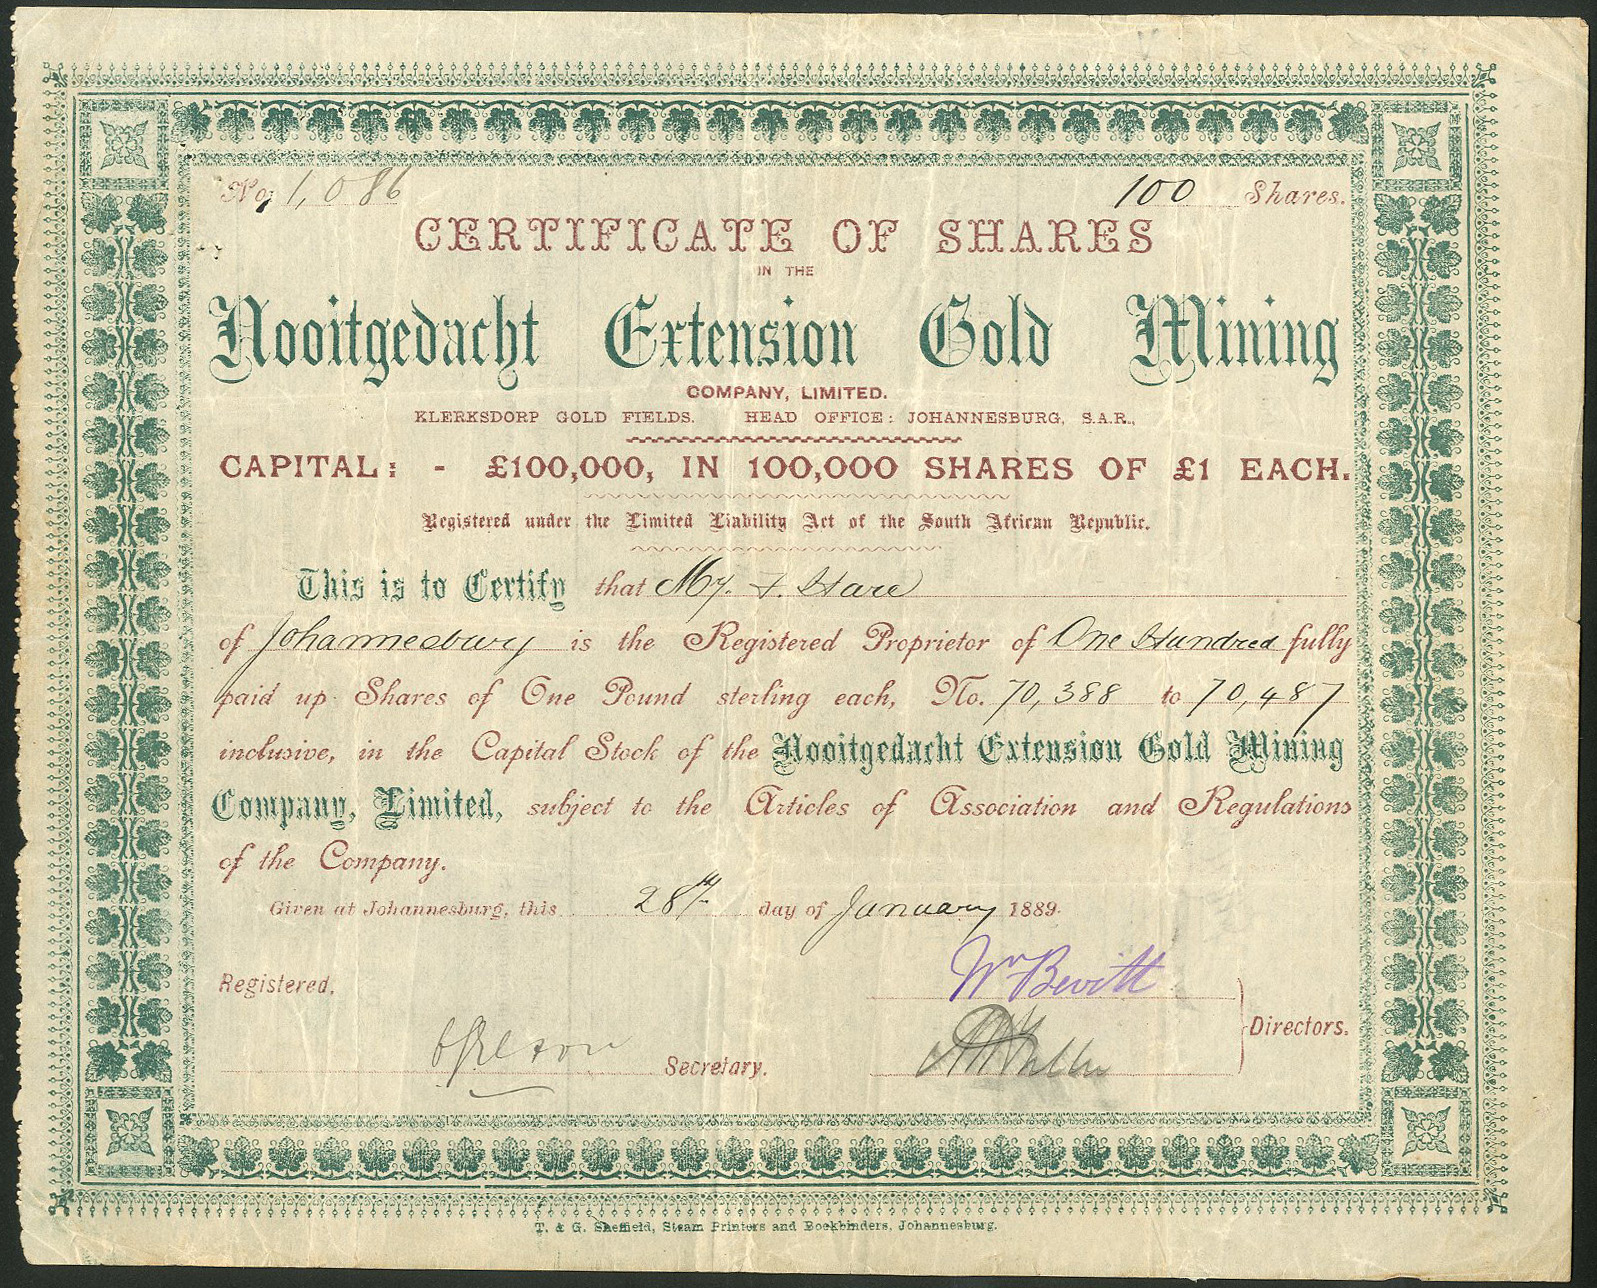 No. 1,086 100 Shares.
CERTIFICATE OF SHARES
IN THE
Nooitgedacht Extension Gold Mining
COMPANY, LIMITED.
KLERKSDORP GOLD FIELDS. HEAD OFFICE: JOHANNESBURG, S.A.R.,
CAPITAL: - £100,000, IN 100,000 SHARES OF £1 EACH.
Registered under the Limited Liability Act of the South African Republic.
This is to Certify that Mr. F. Hare
of Johannesburg is the Registered Proprietor of One Hundred fully
paid up Shares of One Pound sterling each, No. 70,388 to 70,487
inclusive, in the Capital Stock of the Nooitgedacht Extension Gold Mining
Company, Limited, subject to the Articles of Association and Regulations
of the Company.
Given at Johannesburg, this 28th day of January 1889.
Wm Bevitt
Registered,
Directors.
Secretary.
T. & G. Sheffield, Steam Printers and Bookbinders, Johannesburg.